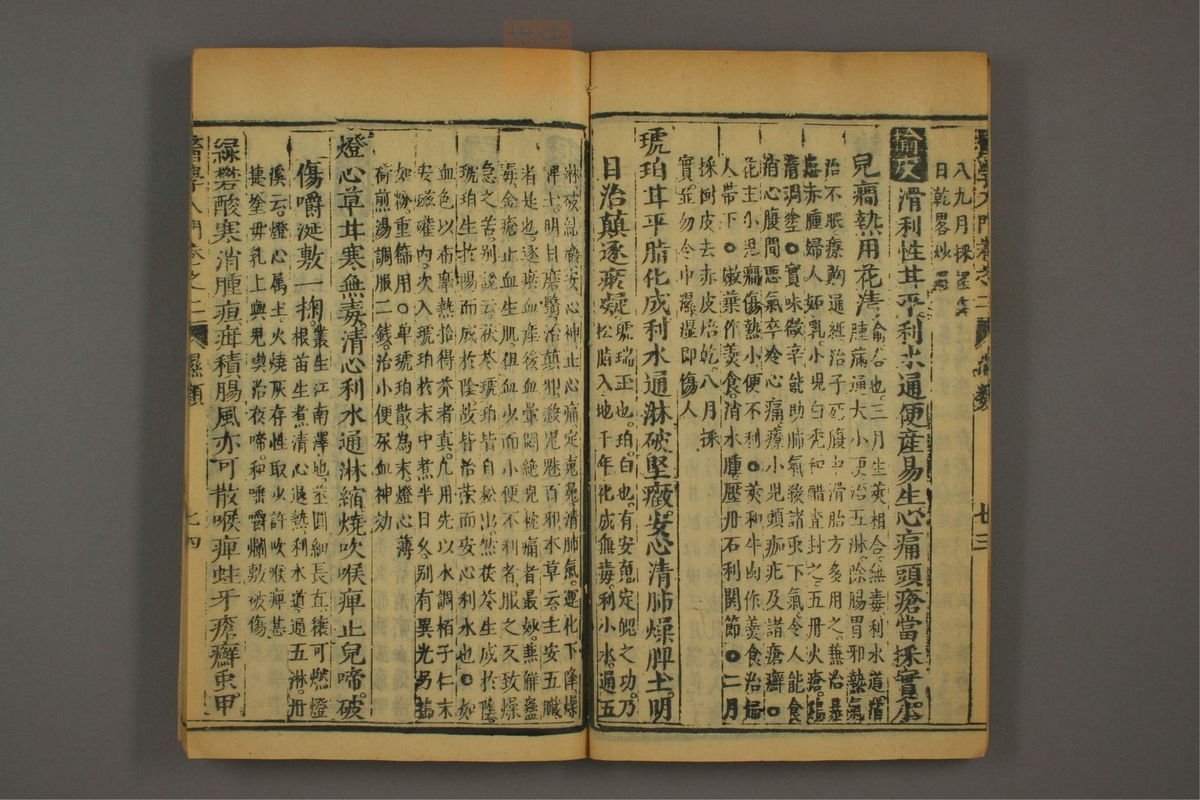 醫學入門卷之二 濕類 七三
八九月採
日乾畧炒
榆皮滑利性甘平利水通便産易生心痛頭瘡當採實
兒癎熱用花清榆俞合也三月生莢相合無毒利水道滑
腫痛通大小便治五淋除腸胃邪熱氣
治不眠療齁通經治子死腹中滑胎方多用之兼治暴
患赤腫婦人妬乳小兒白禿和醋查封之五丹火瘡雞
清調塗○實味微辛能助肺氣殺諸虫下氣令人能食
消心腹間惡氣卒冷心痛療小兒頭疕及諸瘡癬○
花主小兒癎傷熱小便不利○莢和牛肉作羮食治婦
人帶下○嫩葉作羮食消水腫壓丹石利關節○二月
採樹皮去赤皮焙乾八月採
實並勿令中濕濕即傷人
琥珀甘平脂化成利水通淋破堅癥安心清肺燥脾土明
目治顛逐瘀凝琥瑞玉也珀白也有安魂定魄之功乃
松脂入地千年化成無毒利小水通五
淋破結癥安心神止心痛定魂魄清肺氣運化下降燥
脾土明目磨瞖治顛邪殺鬼魅百邪本草云主安五臟
者是也逐瘀血産後血暈悶絶兒枕痛者最妙兼解蠱
毒金瘡止血生肌但血少而小便不利者服之反致燥
急之苦別說云茯苓琥珀皆自松出然茯苓生成於陰
琥珀生於陽而成於陰故皆治榮而安心利水也○如
血色以布摩熱拾得芥者真凡用先以水調栢子仁末
安磁礶内次入琥珀於末中煮半日久別有異光另搗
如粉重篩用○単琥珀散為末燈心薄
荷煎湯調服二錢治小便尿血神効
燈心草甘寒無毒清心利水通淋縮燒吹喉痺止兒啼破
傷嚼涎敷一掬叢生江南澤地莖圓細長直穰可燃燈
根苗生煮清心退熱利水道通五淋丹
溪云燈心屬土火燒灰存性取少許吹喉痺甚
捷塗母乳上與兒喫治夜啼和唾嚼爛敷破傷
綠礬酸寒消腫疸疳積腸風亦可散喉痺蛀牙瘡癬虫甲
醫學入門卷之二 濕類 七四